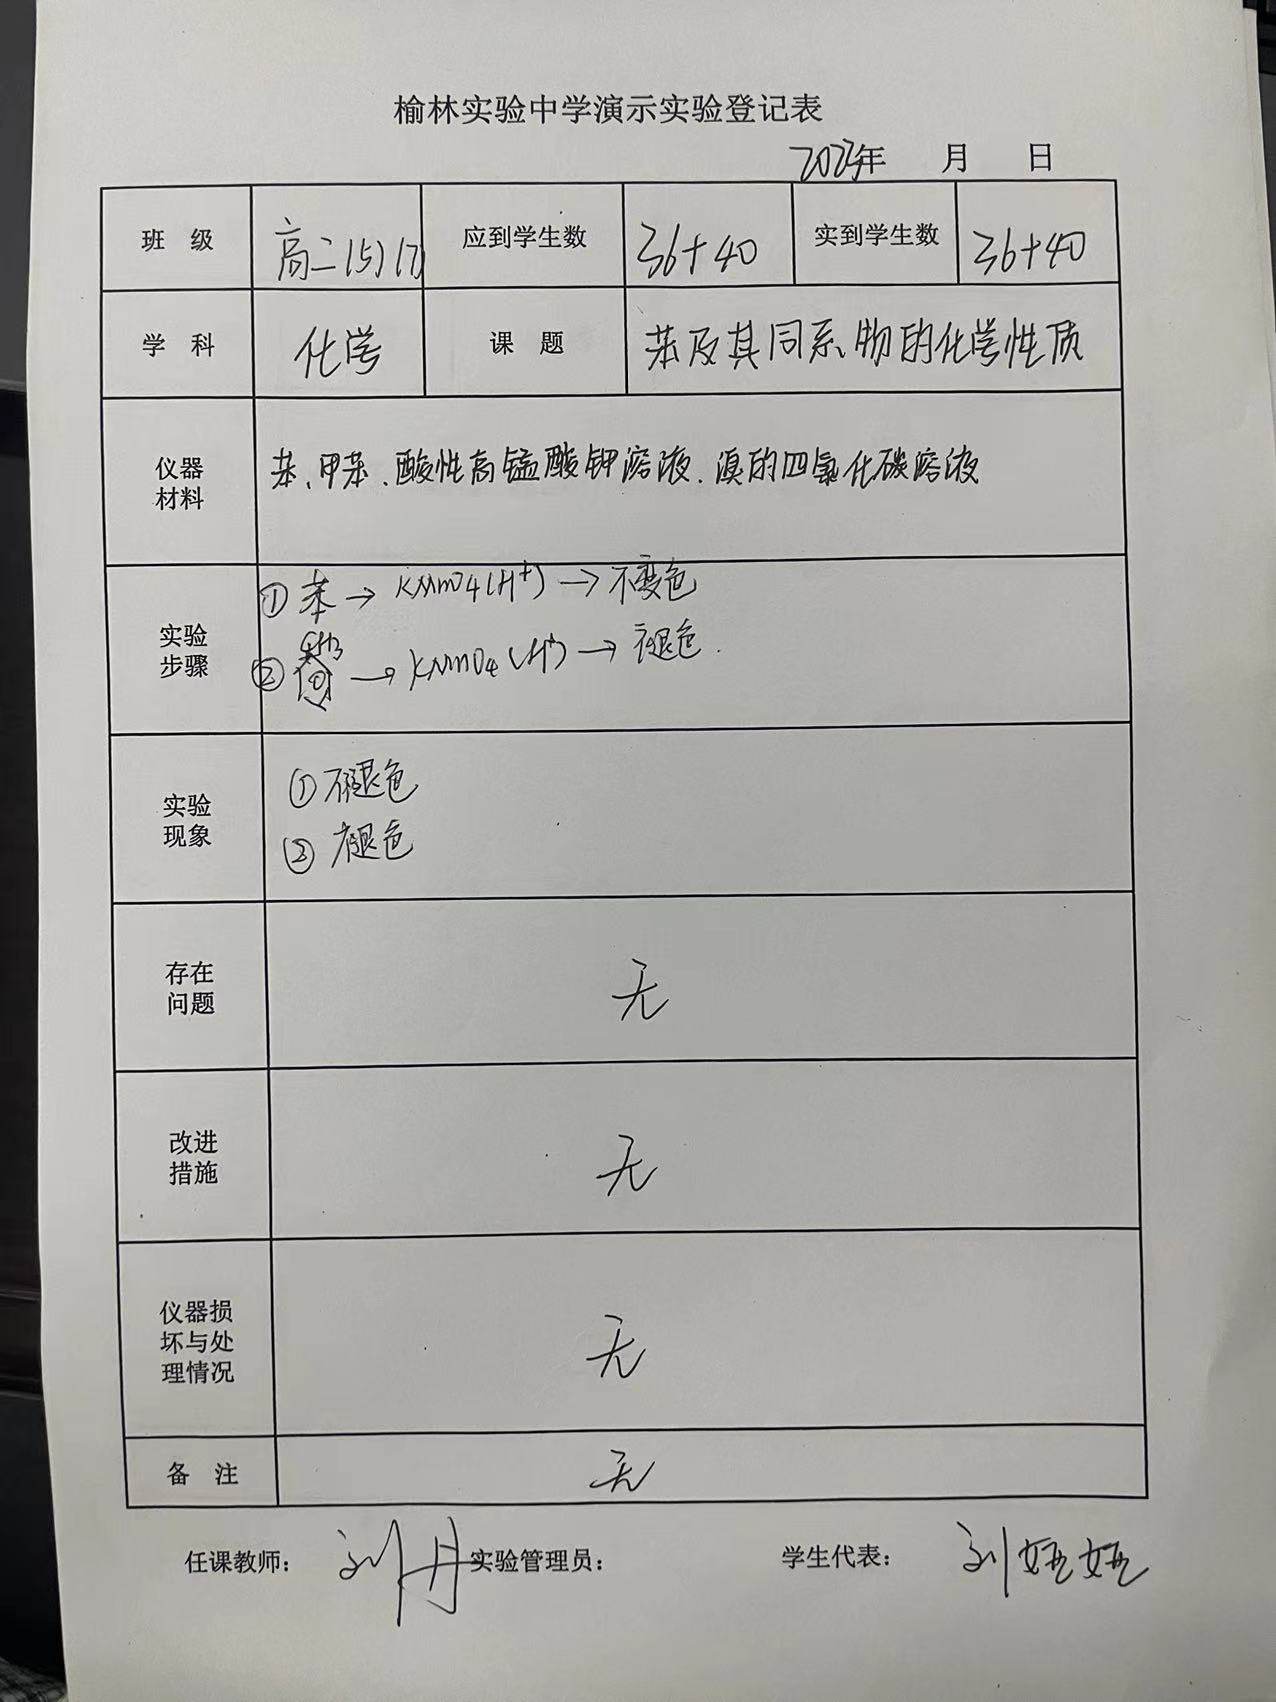 榆林实验中学演示实验登记表
2023年 月 日
班 级 高二(5)(7) 应到学生数 36+40 实到学生数 36+40
学 科 化学 课 题 苯及其同系物的化学性质
仪器
材料
苯、甲苯、酸性高锰酸钾溶液、溴的四氯化碳溶液
实验
步骤
①苯→KMnO4(H+)→不变色
② CH3 →KMnO4(H+)→褪色.
实验
现象
①不褪色
②褪色
存在
问题
无
改进
措施
无
仪器损
坏与处
理情况
无
备 注 无
任课教师: 刘丹 实验管理员: 学生代表: 刘娅娅